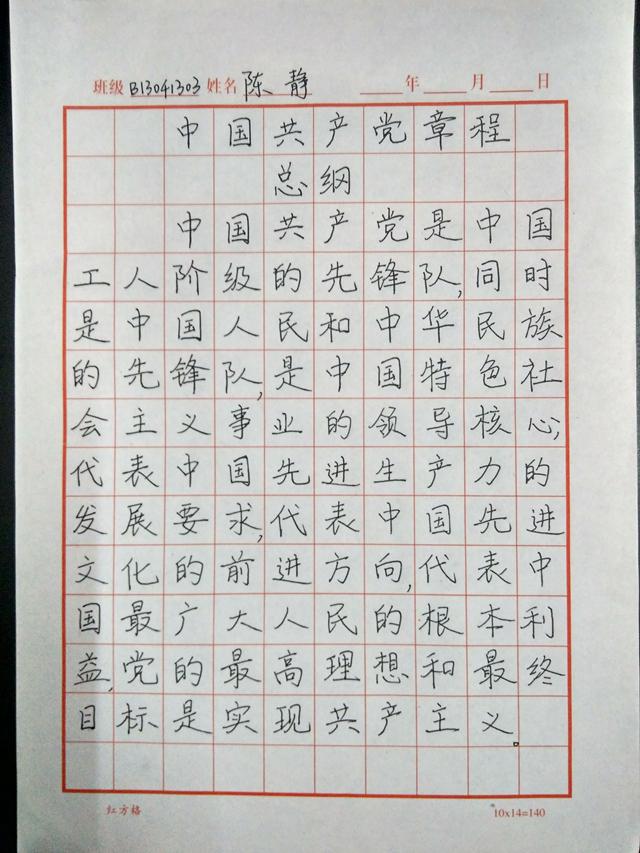 班级 B13041303 姓名 陈静 年 月 日
中国共产党章程
总纲
中国共产党是中国
工人阶级的先锋队,同时
是中国人民和中华民族
的先锋队,是中国特色社
会主义事业的领导核心,
代表中国先进生产力的
发展要求,代表中国先进
文化的前进方向,代表中
国最广大人民的根本利
益,党的最高理想和最终
目标是实现共产主义。
红方格 10x14=140